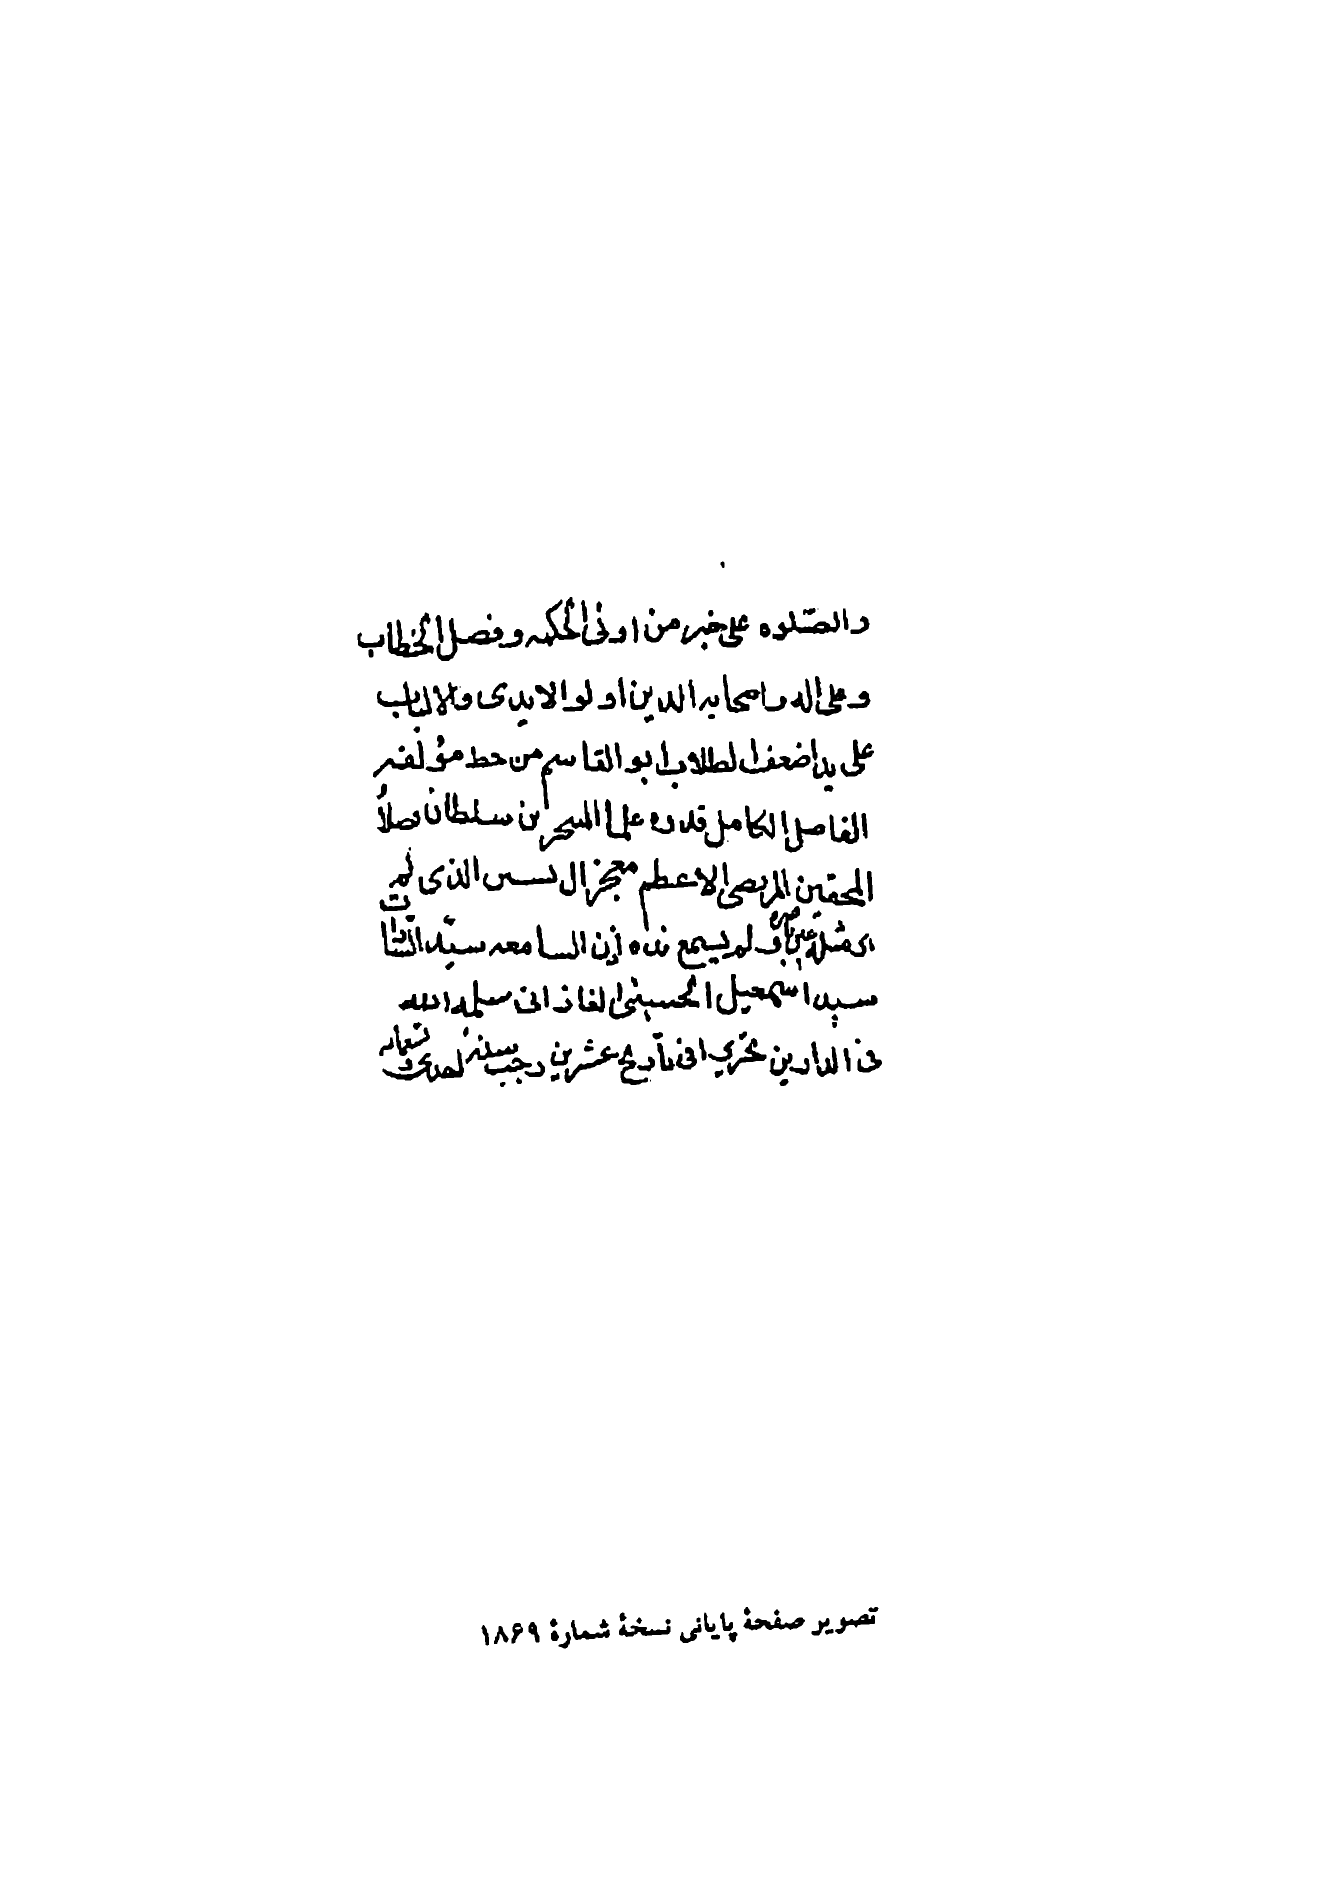 والصّلوه على خير من اوتى الحكمه وفصل الخطاب
وعلى اله واصحابه الذين اولو الايدى والالباب
على يد اضعف الطلاب ابو القاسم من خط مؤلفه
الفاضل الكامل قدوه علما المتبحرين سلطان فضلاً
المحققين المرتضى الاعظم معجز ال يسين الذى لم ت
رى مثله عين باصره ف لم يسمع نده اذن السامعه سيّد السّادات
سيد اسمعيل الحسينى الفارانى سلمه الله
فى الدارين تحريراً فى تاريخ عشرين رجب سنه احدى و تسعمائه
تصویر صفحهٔ پایانی نسخهٔ شمارهٔ ۱۸۶۹